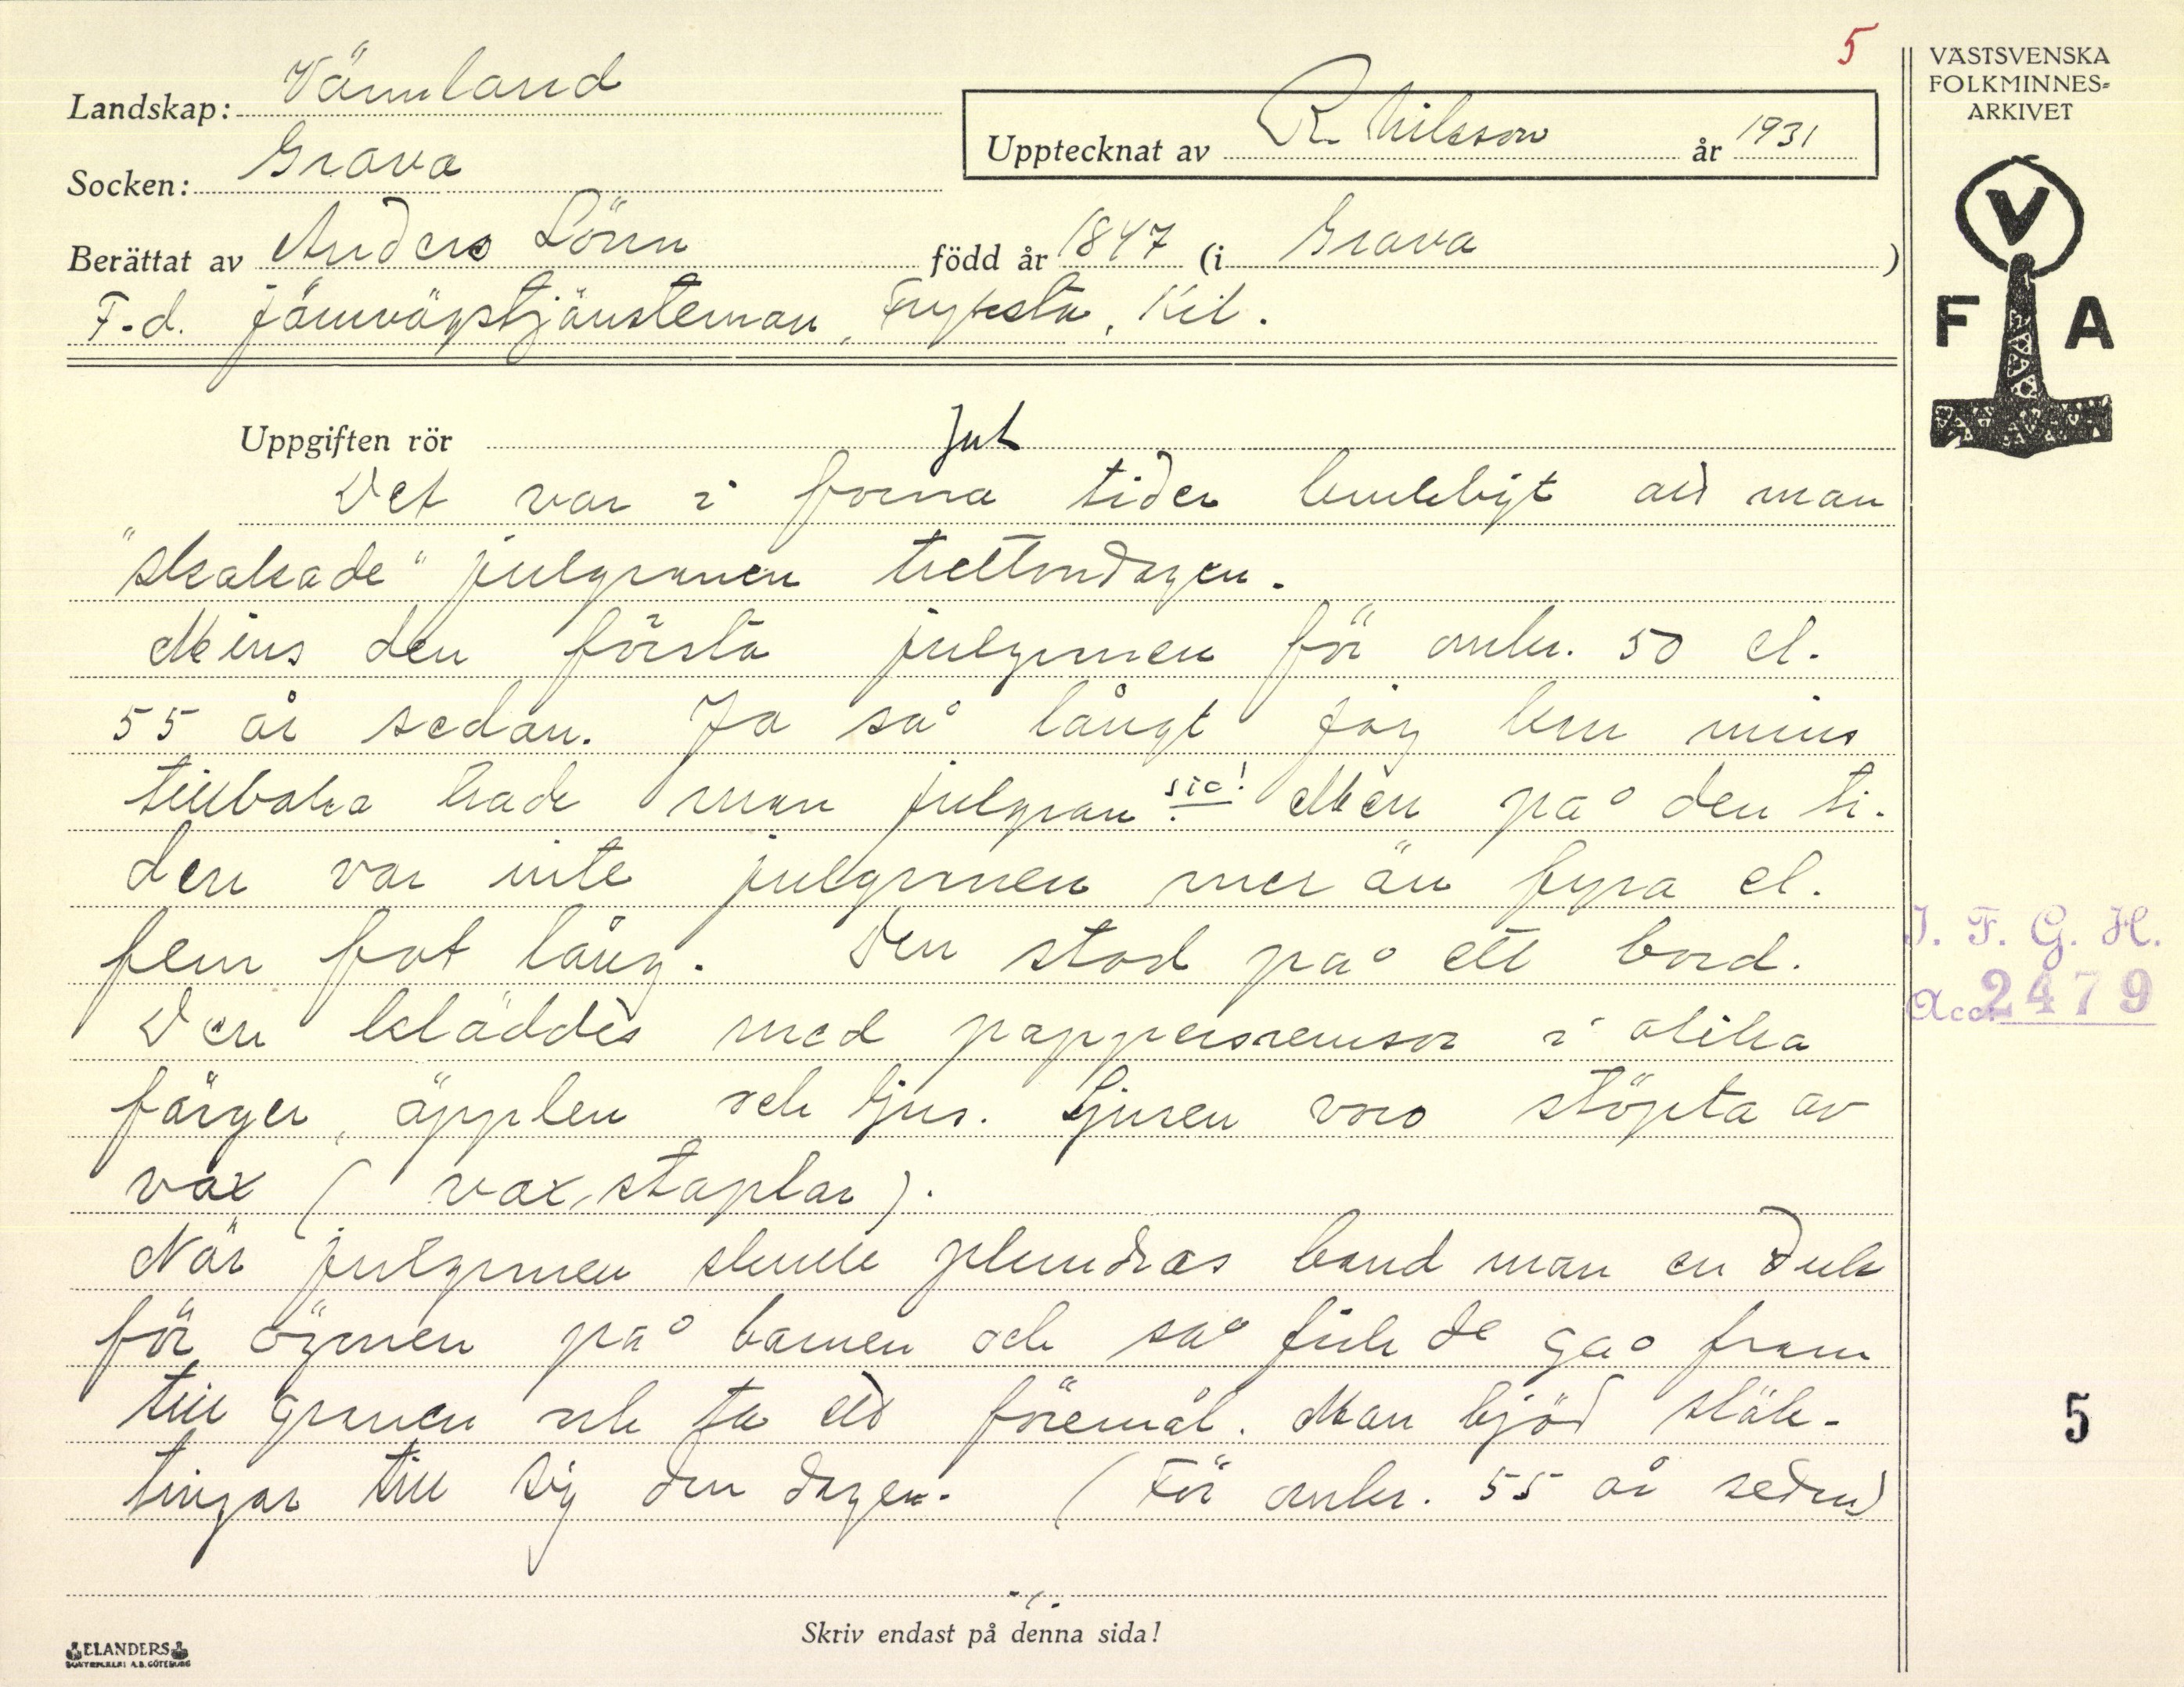 5
VÄSTSVENSKA
FOLKMINNES-
ARKIVET
V
F A
Landskap: Värmland
Socken: Grava
Upptecknat av R. Nilsson år 1931
Berättat av Anders Lönn född år 1847 (i Grava)
F.d. järnvägstjänsteman, Fryksta, Kil.
Uppgiften rör Jul
Det var i forna tider brukligt att man
"skakade" julgranen trettondagen.
Mins den första julgranen för omkr. 50 el.
55 år sedan. Ja så långt jag kan mins
tillbaka hade man julgran sic! Men på den ti-
den var inte julgranen mer än fyra el.
fem fot lång. Den stod på ett bord.
Den kläddes med pappersremsor i olika
färger, äpplen och ljus. Ljusen voro stöpta av
vax (vax,staplar).
När julgranen skulle plundras band man en duk
för ögonen på barnen och så fick de gå fram
till granen och ta ett föremål. Man bjöd släk-
tingar till sig den dagen. (För omkr. 55 år sedan)
I. F. G. H.
Acc. 2479
5
Skriv endast på denna sida!
ELANDERS
BOKTRYCKERI A.B. GÖTEBORG